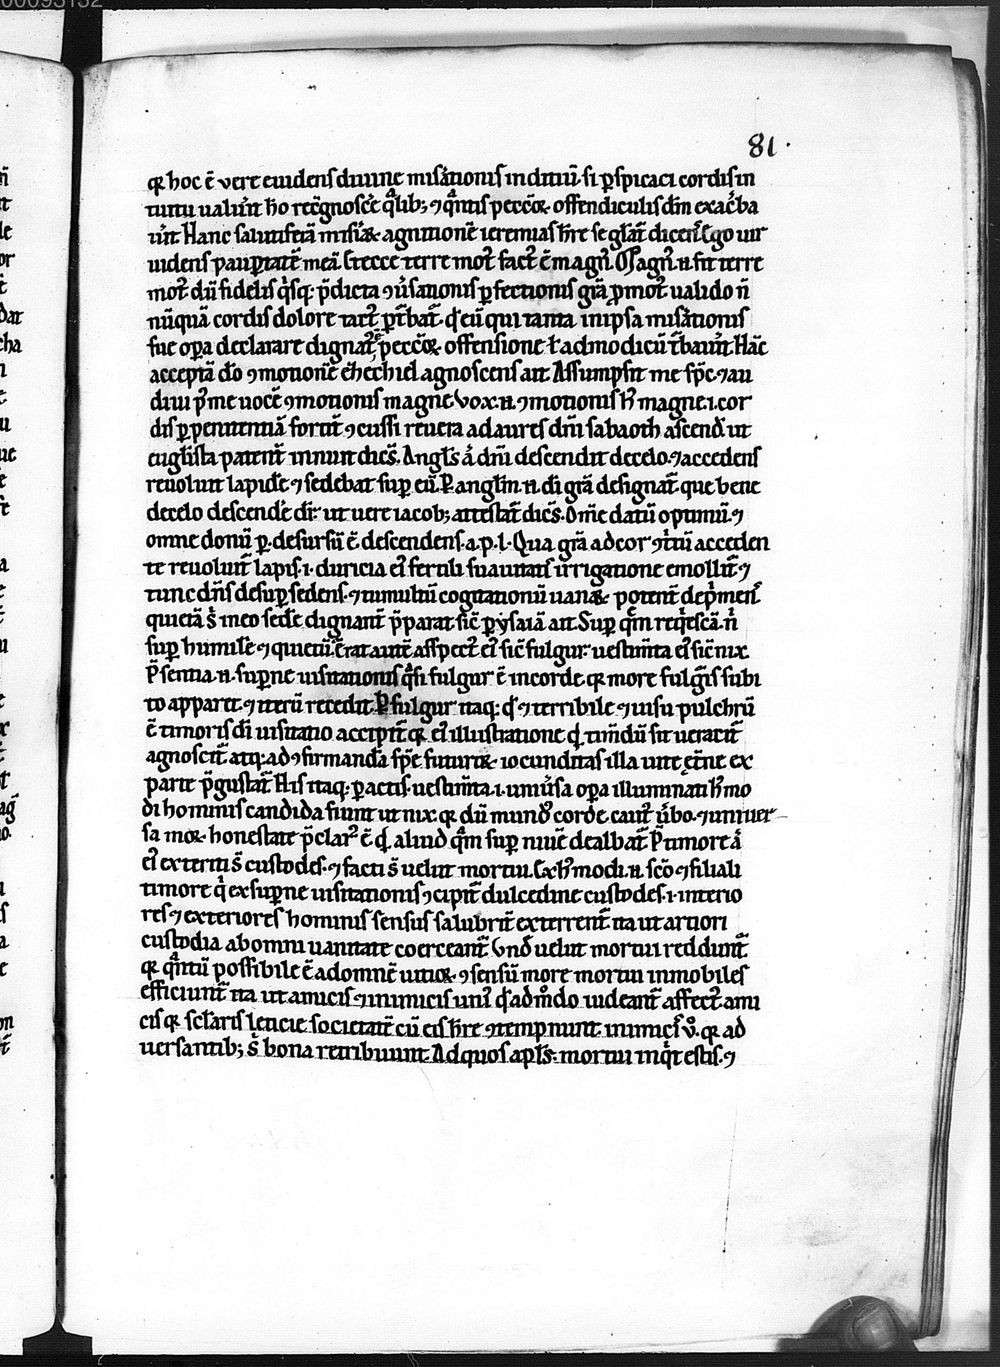 81.
qr hoc ē vere euidens diuine mis̃ationis indiciū. si ꝑspicaci cordis in
tuitu ualuꝰ͛nt h̃o rec̃gnosc̃e q̃lib; ⁊ q̃ntis pecc̃oꝝ offendiculis dm̃ exac̃ba
ur̃nt. Hanc salutiferā miserie agnitionē ieremias h̃re se gl̃at̃ dicens. Ego uir
uidens pauꝑtatē meā. Et ecce terre mot̃ fact̃ ē magn̄. Magn̄ .n. fit terre
mot̃ dū fidelis q̃sq; p̃dicta ꝯũsationis ꝑfectionis gr̃a ꝓmot̃ ualido n̄
nūquā cordis dolore tact̃ ꝑt̃bat̃ q̃ eū qui tanta in ipsa mis̃ationis
sue oꝑa declarare dignat̃, pecc̃oꝝ offensione ł ad modicū t̃bauꝰ͛nt. Hāc
acceptā đo ꝯmotionē eħechiel agnoscens ait. Assumpsit me sp̃c ⁊ au
diui p̃ me uocē ꝯmotionis magne. Vox .n. ꝯmotionis h̃ magne .i. cor
dis ꝑ penitentiā fortit̃ ꝯcussi reuera ad aures dn̄i sabaoth ascend̃ ut
eugl̃ista patent̃ innuit dic̃s. Angl̃s .n. dn̄i descendit de celo. ⁊ accedens
reuoluit lapidē ⁊ sedebat suꝑ eū. P̱ angl̃m .n. di gr̃a designat̃ que bene
de celo descend̃e d̃r ut uere iacob; attestat̃ dic̃s. Om̃e datū optimū. ⁊
omne donū ꝑ. desursū ē. descendens .a.p.l. Qua gr̃a ad cor ꝯt̃tū acceden
te reuoluit̃ lapis .i. duricia ei̓ fertili suauitatis irrigatione emollit̃ ⁊
tunc dn̄s desuꝑ sedens. ⁊ tumultū cogitationū uanaꝝ potent̃ dep̃mens
quietā s̃ in eo sedē dignant̃ p̃parat sic̃ ꝑ ysaiā ait. Suꝑ q̃m req̃escā n̄
suꝑ humilē ⁊ quietū. Erat autē aspect̃ ei̓ sic̃ fulgur. uestim̃ta ei̓ sic̃ nix.
P̃sentia .n. suꝑne uisitationis q̃si fulgur ē in corde. qr more fulg̃is subi
to apparet. ⁊ iterū recedit. P̱ fulgur itaq; q̃ ⁊ terribile ⁊ uisu pulchrū
ē timoris di uisitatio accipit̃ qr ei̓ illustratione qđ timēdū sit ueracit̃
agnoscit̃ atq; ad ꝯfirmandā spē futuroꝝ iocunditas illa uite et̃ne ex
parte p̃gustat̃. His itaq; ꝑactis. uestim̃ta .i. uniũsa oꝑa illuminati h̃mo
di hominis candida fiunt ut nix. qr dū mund̃ corde. caut̃ ũbo. ⁊ uniuer
sa moꝝ honestate p̃clar̃ ē qđ aliud q̃m suꝑ niuē dealbat̃. P̃ timore ā
ei̓ exterriti s̃ custodes. ⁊ facti s̃ uelut mortui. Ex h̃modi .n. sc̃o ⁊ filiali
timore q̃ ex suꝑne uisitationis ꝯcipit̃ dulcedine custodes .i. interio
res ⁊ exteriores hominis sensus salubrit̃ exterrent̃ ita ut artiori
custodia ab omni uanitate coerceant̃. Vnđ uelut mortui reddunt̃.
qr q̃ntū possibile ē ad omnē uitioꝝ ꝯsensū more mortui inmobiles
efficiunt̃ ita ut amicis ⁊ inimicis uni̓ q̃dām̃do uideant̃ affect̃. ami
cis qr sc̃laris lencie societatē cū eis h̃re ꝯtempnunt. inimicis v̊. qr ad
versantib; s̃ bona retribuunt. Ad quos apl̃s. mortui inq̃t estis. ⁊